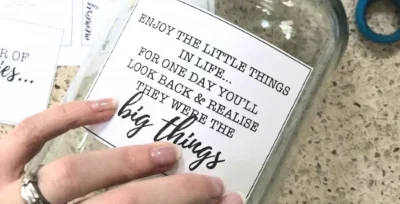 memory
R OF
ies...
ENJOY THE LITTLE THINGS
IN LIFE...
FOR ONE DAY YOU'LL
LOOK BACK & REALISE
THEY WERE THE
big things